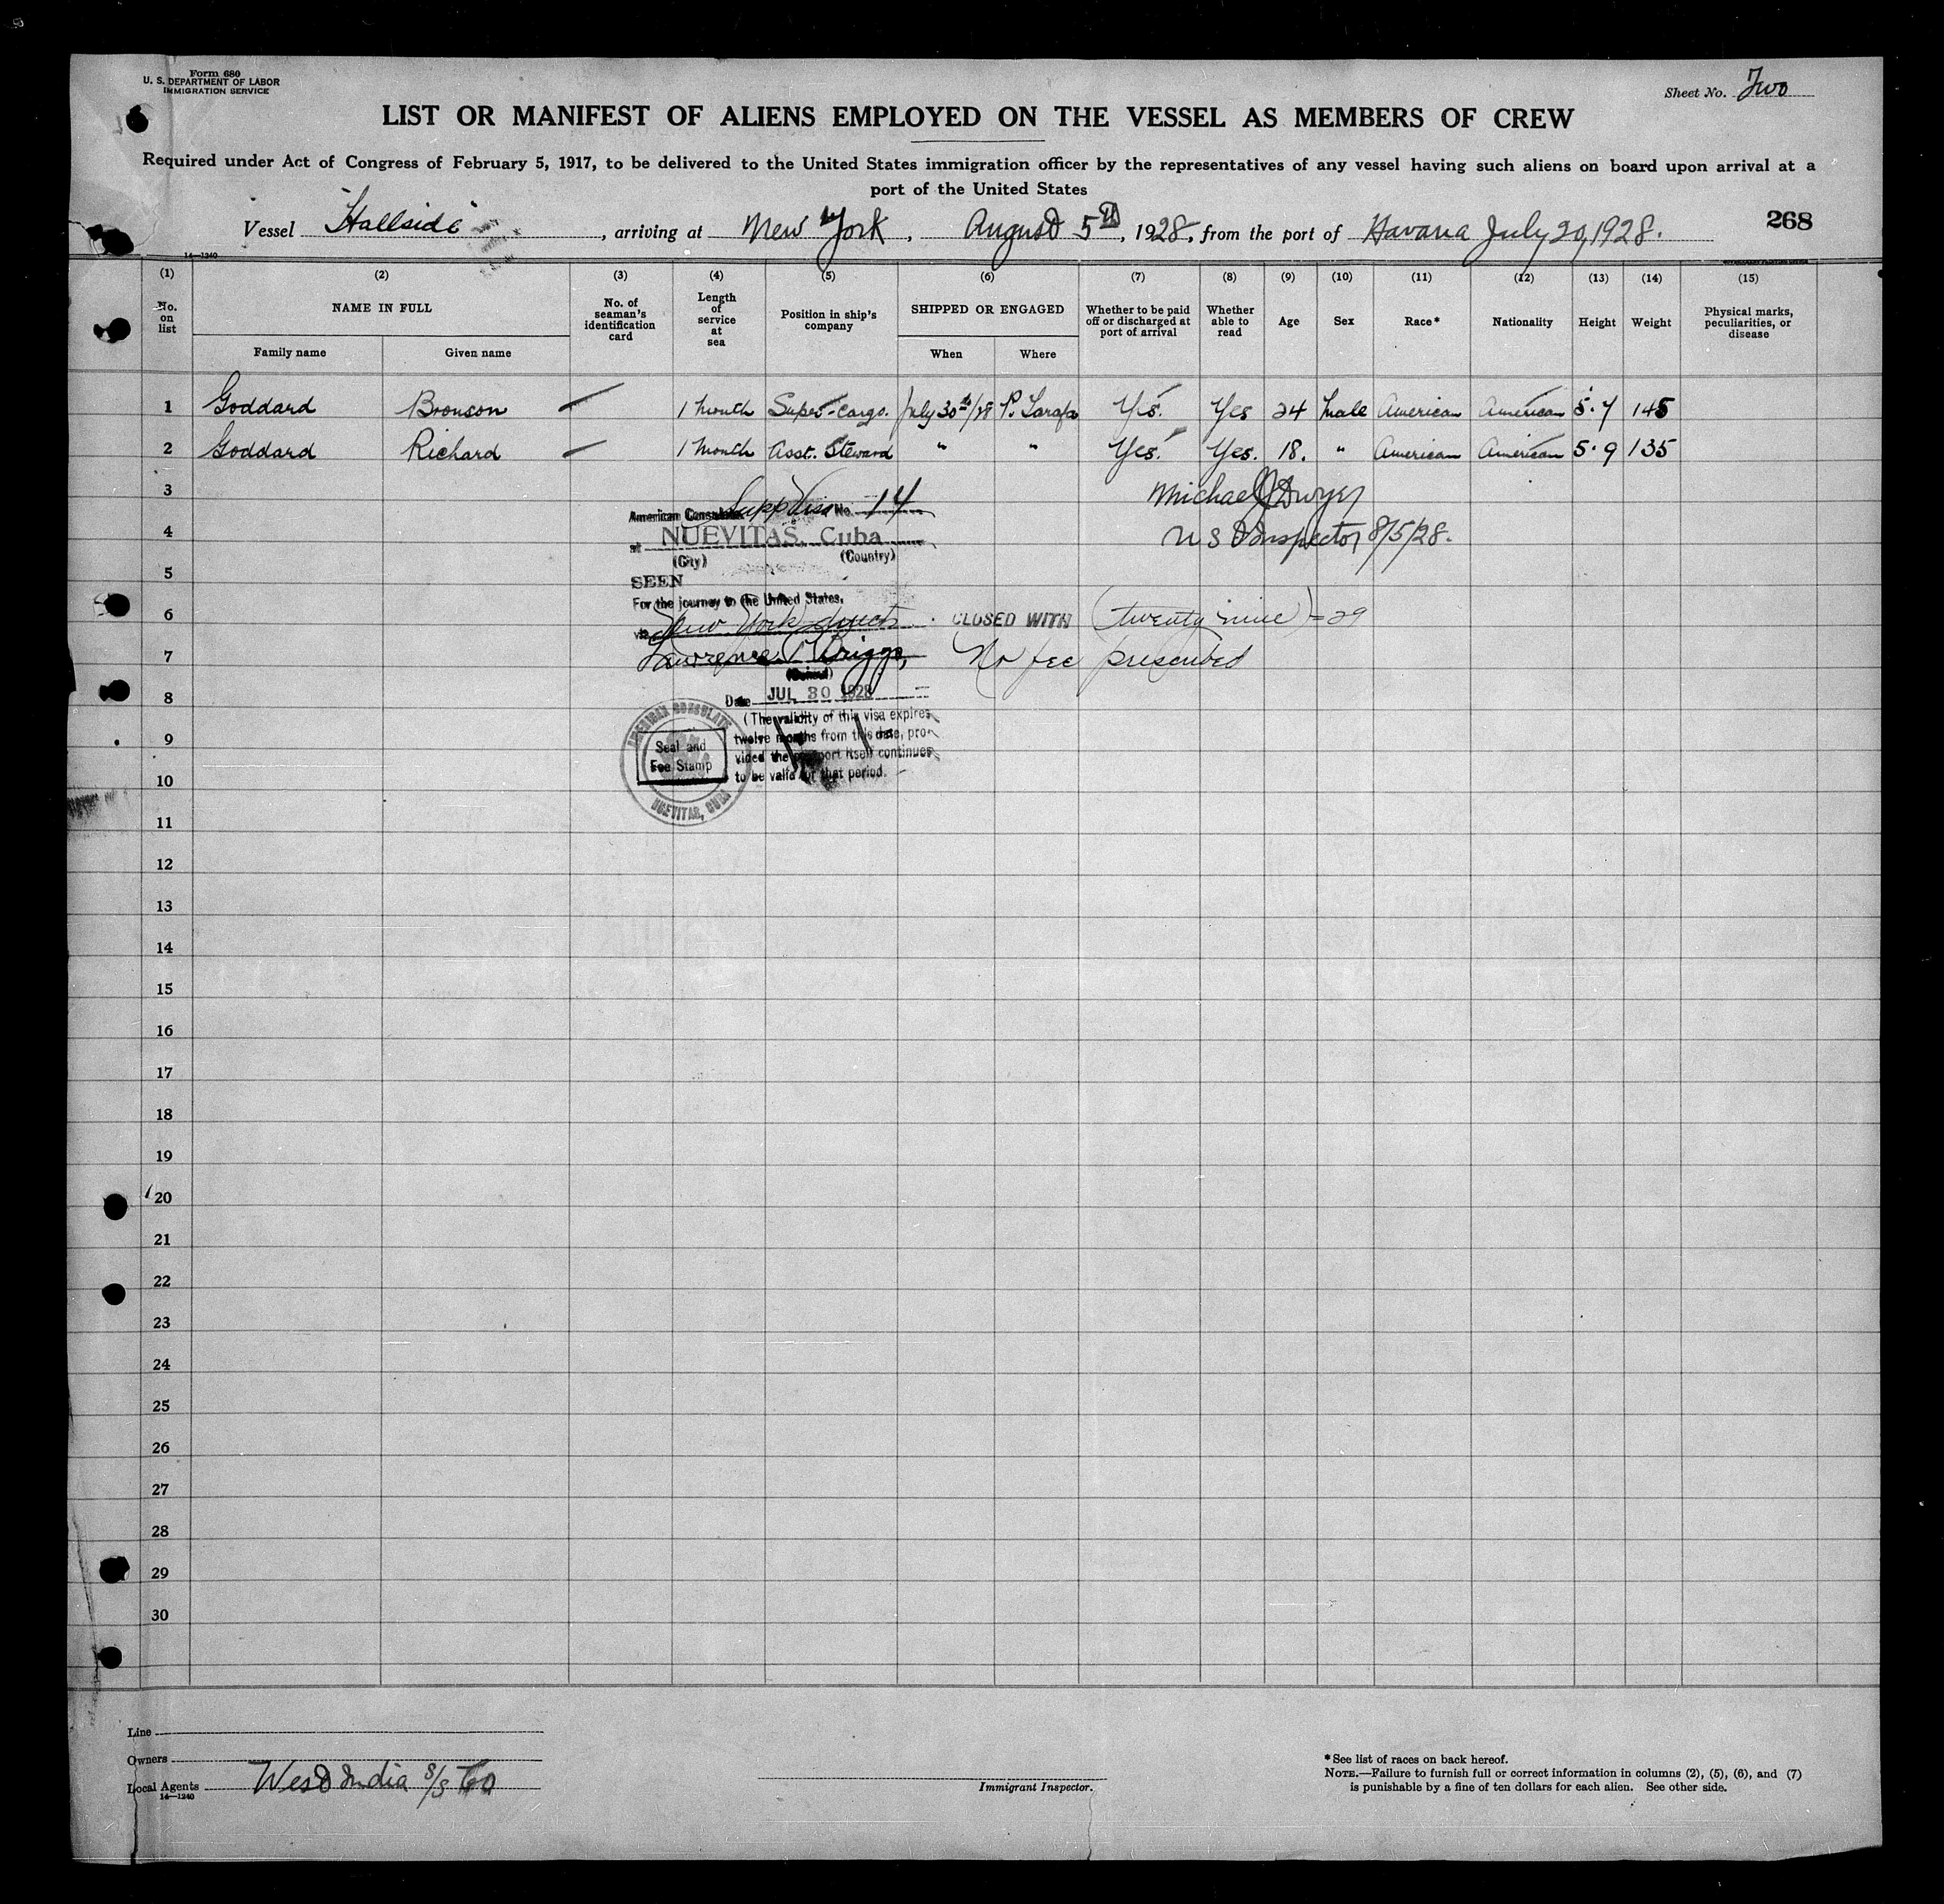 Form 680
U. S. DEPARTMENT OF LABOR
IMMIGRATION SERVICE
Sheet No. Two
LIST OR MANIFEST OF ALIENS EMPLOYED ON THE VESSEL AS MEMBERS OF CREW
Required under Act of Congress of February 5, 1917, to be delivered to the United States immigration officer by the representatives of any vessel having such aliens on board upon arrival at a
port of the United States
Vessel "Hallside", arriving at New York, August 5th, 1928, from the port of Havana July 20, 1928.
268
14—1240
(1) (2) (3) (4) (5) (6) (7) (8) (9) (10) (11) (12) (13) (14) (15)
No. on list NAME IN FULL No. of seaman's identification card Length of service at sea Position in ship's company SHIPPED OR ENGAGED Whether to be paid off or discharged at port of arrival Whether able to read Age Sex Race* Nationality Height Weight Physical marks, peculiarities, or disease
Family name Given name When Where
1 Goddard Bronson — 1 month Super-cargo. July 30th/28 P. Tarafa Yes. Yes 24 male American American 5.7 145
2 Goddard Richard — 1 month Asst. Steward " " Yes. Yes. 18. " American American 5.9 135
3 Michael J Dwyer
American Consulate Supp Visa No. 14
4 at NUEVITAS, Cuba U S I Inspector 8/5/28.
(City) (Country)
5
SEEN
For the journey to the United States.
6 via New York direct CLOSED WITH (twenty nine) = 29
7 Lawrence Briggs, No fee prescribed
(Consul)
8 Date JUL 30 1928
(The validity of this visa expires
9 twelve months from this date, pro-
vided the passport itself continues
10 to be valid for that period.
AMERICAN CONSULATE
Seal and
Fee Stamp
NUEVITAS, CUBA
11
12
13
14
15
16
17
18
19
20
21
22
23
24
25
26
27
28
29
30
Line
Owners
Local Agents West India S/S Co
14—1240
Immigrant Inspector.
*See list of races on back hereof.
NOTE.—Failure to furnish full or correct information in columns (2), (5), (6), and (7)
is punishable by a fine of ten dollars for each alien. See other side.